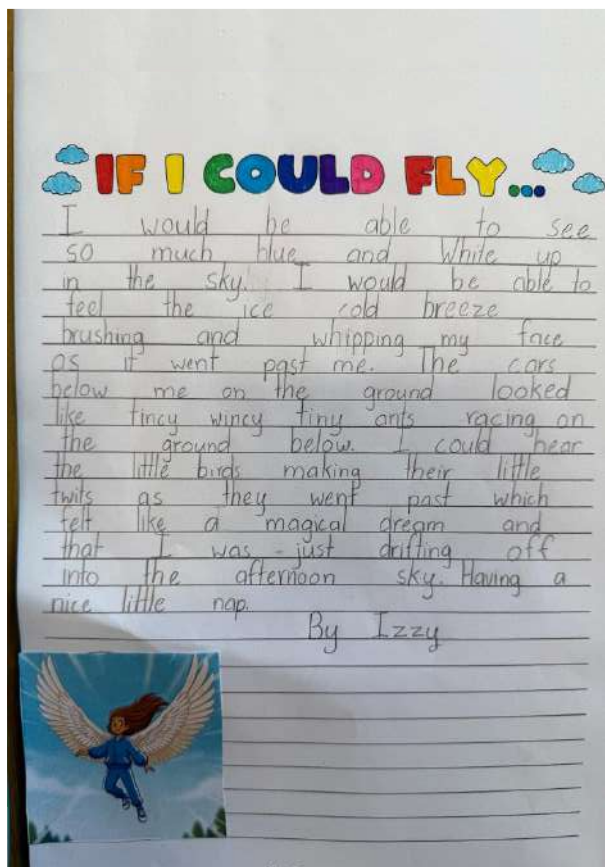 IF I COULD FLY...
I would be able to see
so much blue and White up
in the sky. I would be able to
feel the ice cold breeze
brushing and whipping my face
as it went past me. The cars
below me on the ground looked
like tincy wincy tiny ants racing on
the ground below. I could hear
the little birds making their little
twits as they went past which
felt like a magical dream and
that I was - just drifting off
into the afternoon sky. Having a
nice little nap.
By Izzy